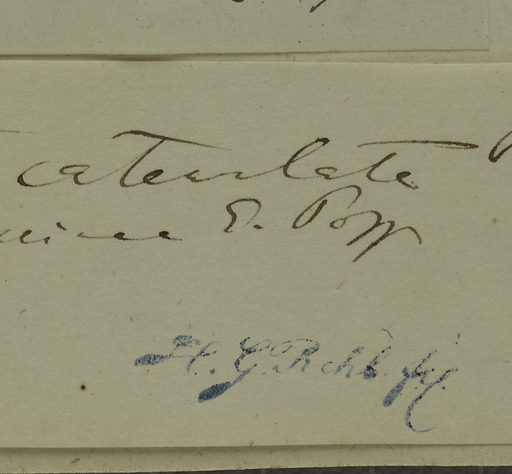 catenulata
E. Popp
H. G. Rchb. fil.